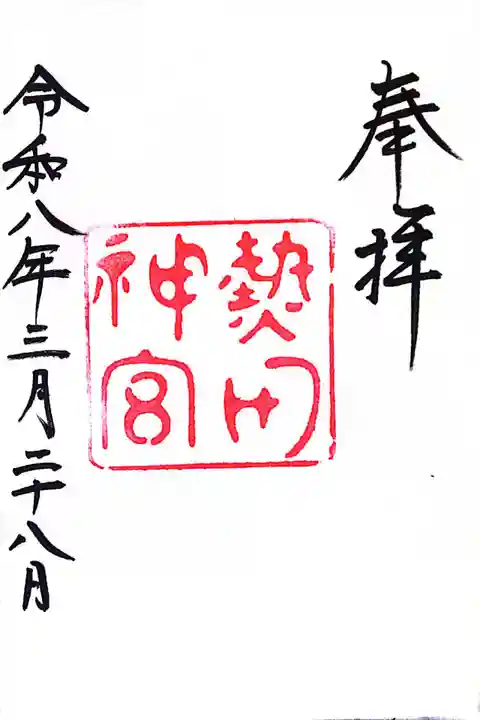 奉拝
熱田
神宮
令和八年三月二十八日